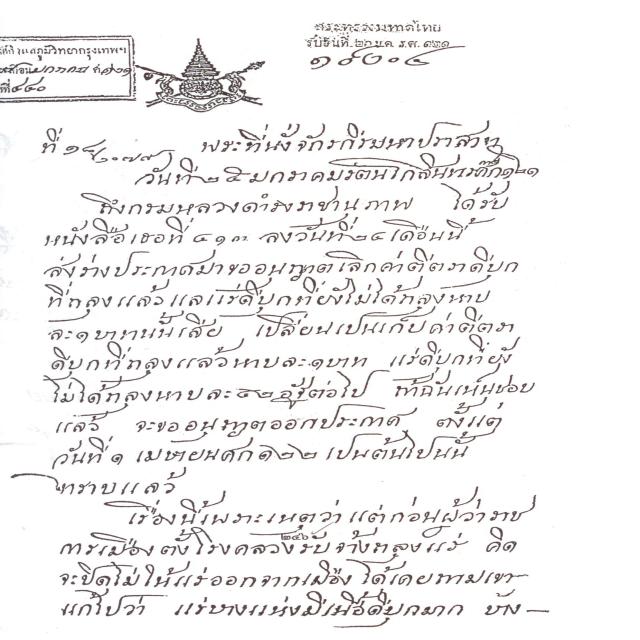 กระทรวงมหาดไทย
รับวันที่ ๒๖ มค ร.ศ. ๑๒๑
ที่ ๔๔๐
พระที่นั่งจักรกรีมหาปราสาท
วันที่ ๒๕ มกราคม รัตนโกสินทรศก ๑๒๑
ถึง กรมหลวงดำรงราชานุภาพ ได้รับ
หนังสือเธอที่ ลงวันที่ ๒๔ เดือนนี้
ส่งร่างประกาศมาขออนุญาตเลิกค่าตีตราดีบุก
ที่ถลุงแล้วแลแร่ดีบุกที่ยังไม่ได้ถลุงหาบ
ละ ๑ บาทนั้นเสีย เปลี่ยนเปนเก็บค่าตีตรา
ดีบุกที่ถลุงแล้วหาบละ ๑ บาท แร่ดีบุกที่ยัง
ไม่ได้ถลุงหาบละ ๔๒ อัฐต่อไป ถ้าฉันเห็นชอบ
แล้ว จะขออนุญาตออกประกาศ ตั้งแต่
วันที่ ๑ เมษายน ศก ๑๒๒ เปนต้นไปนั้น
ทราบแล้ว
เรื่องนี้เพราะเหตุว่า แต่ก่อนผู้ว่าราช
การเมืองตั้งโรงหลวงรับจ้างถลุงแร่ คิด
๒๔๖
จะปิดไม่ให้แร่ออกจากเมือง ได้เคยถามเขา
แก้ไปว่า แร่บางแห่งมีเนื้อดีบุกมาก บ้าง